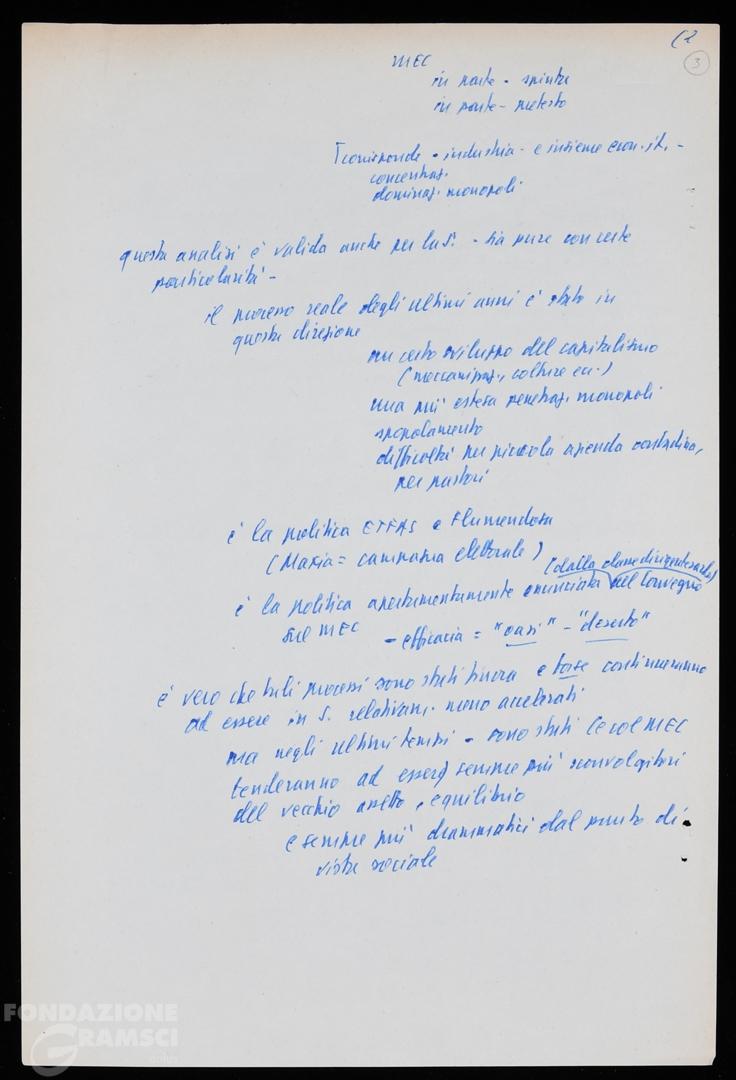 (2
3
MEC
in parte - spinta
in parte - pretesto
corrisponde - industria - e insieme econ. it. -
concentraz.
dominaz. monopoli
questa analisi è valida anche per la S. - sia pure con certe
particolarità -
il processo reale degli ultimi anni è stato in
questa direzione
un certo sviluppo del capitalismo
(meccanizzaz., colture ecc.)
una più estesa penetraz. monopoli
spopolamento
difficoltà per piccola azienda contadina,
per pastori
è la politica ETFAS e Flumendosa
(Maxia = campagna elettorale)
(dalla classe dirigente sarda)
è la politica apertamentamente enunciata nel Convegno
sul MEC - efficacia = "oasi" - "deserto"
è vero che tali processi sono stati finora e forse continueranno
ad essere in S. relativam. meno accelerati
ma negli ultimi tempi - sono stati (e col MEC
tenderanno ad essere) sempre più sconvolgitori
del vecchio assetto, equilibrio
e sempre più drammatici dal punto di
vista sociale
FONDAZIONE
GRAMSCI
onlus